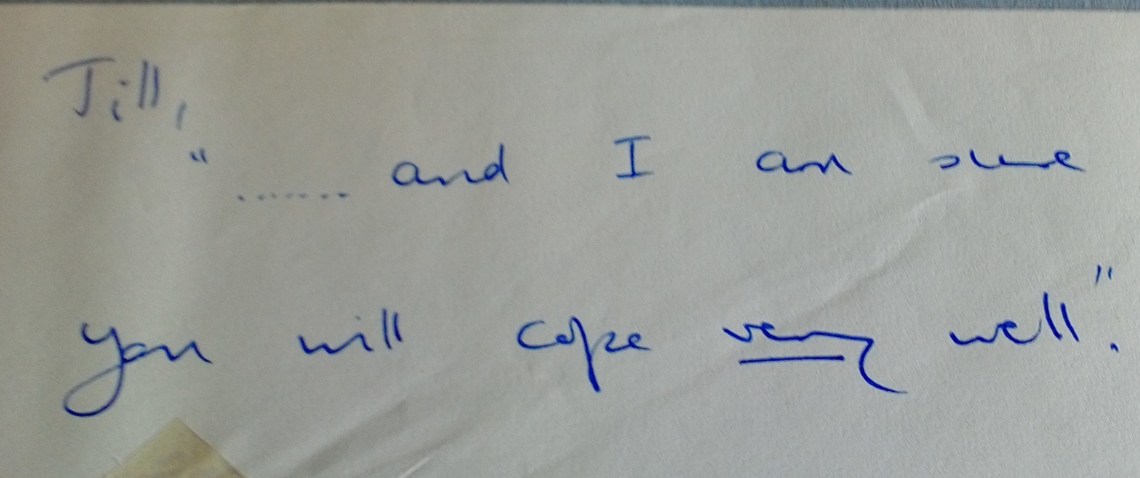 Jill,
"....... and I am sure
you will cope very well".